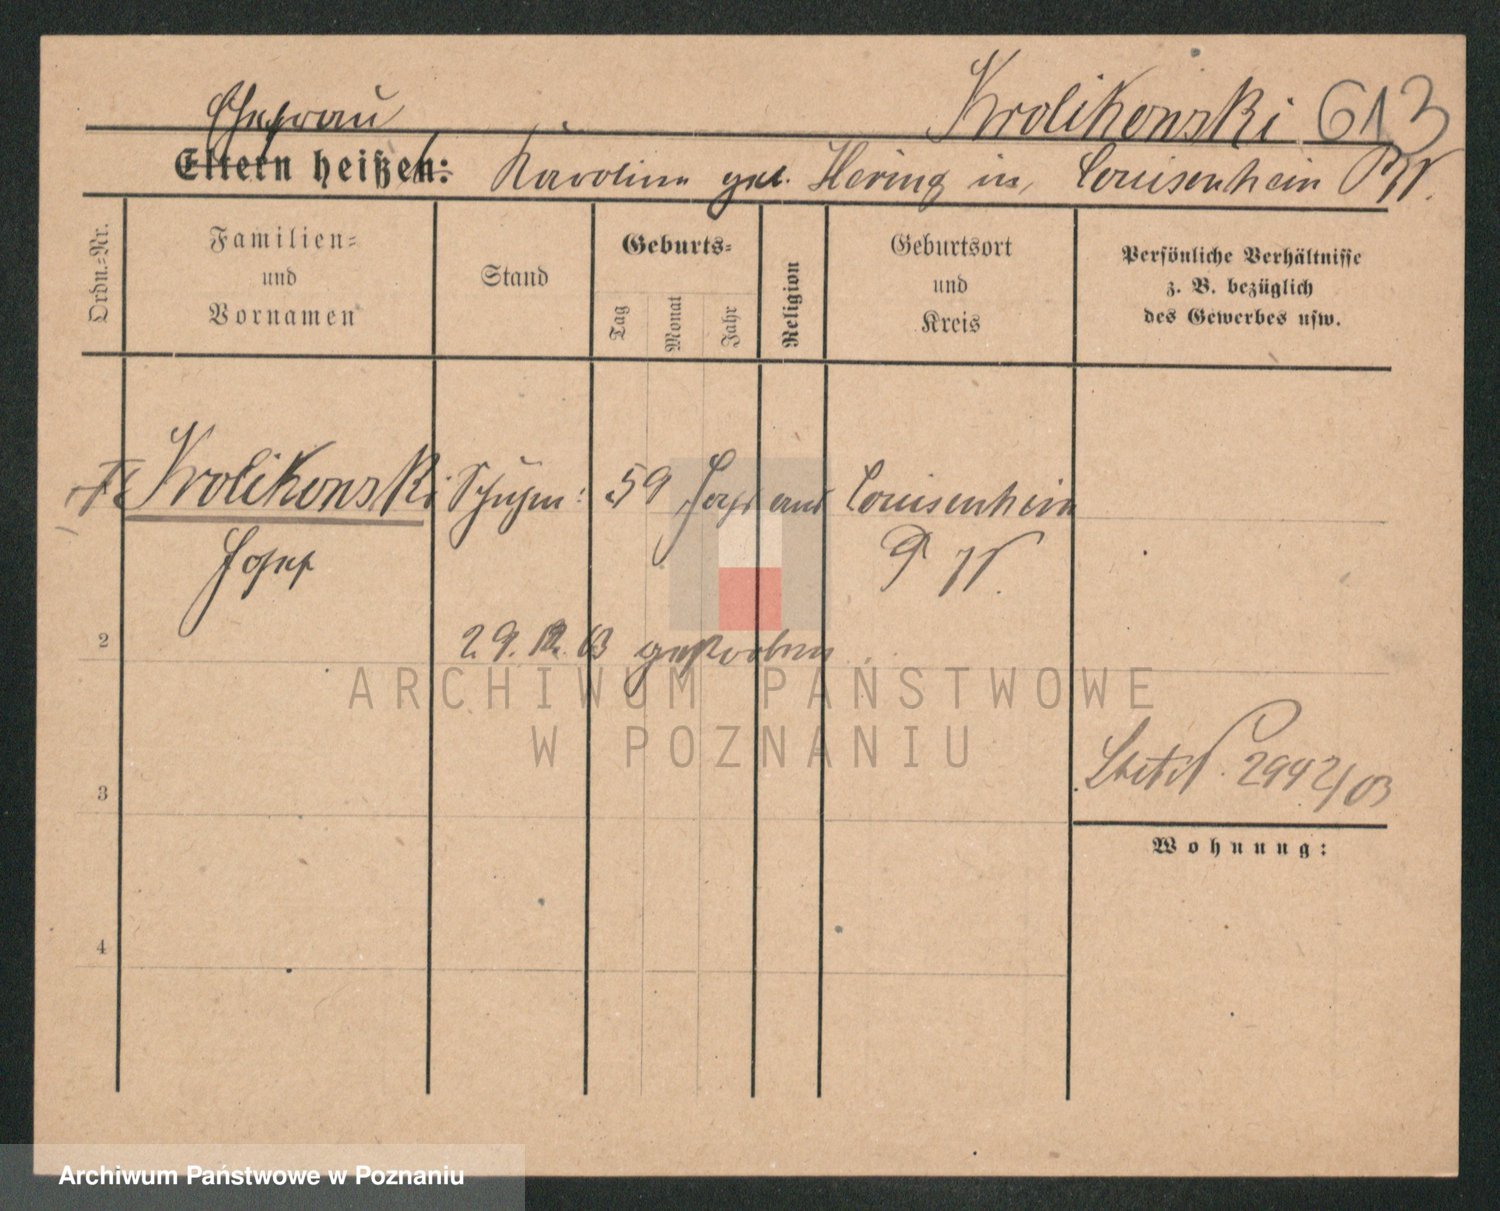 Krolikowski 613
Ehefrau
Eltern heißen: Karoline geb. Hering in Louisenhein P W.
Ordn.=Nr.
Familien=
und
Vornamen
Stand
Geburts=
Tag
Monat
Jahr
Religion
Geburtsort
und
Kreis
Persönliche Verhältnisse
z. B. bezüglich
des Gewerbes usw.
Krolikowski 59 Jahr alt Louisenhein
Josef P W.
2
29. 12. 03 gestorben
ARCHIWUM PAŃSTWOWE
W POZNANIU
3
2942/03
Wohnung:
4
Archiwum Państwowe w Poznaniu